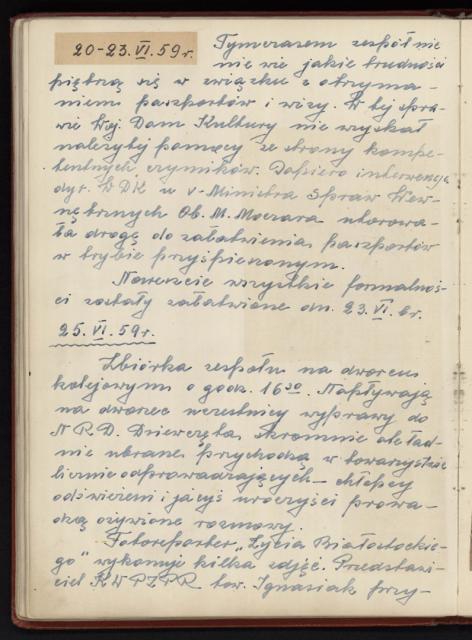 20-23.VI.59r. Tymczasem zespół nie
nie wie jakie trudności
piętrzą się w związku z otrzyma-
niem paszportów i wizy. W tej spra-
wie Woj. Dom Kultury nie uzyskał
należytej pomocy ze strony kompe-
tentnych czynników. Dopiero interwencja
dyr. WDK u v-Ministra Spraw Wew-
nętrznych Ob. M. Moczara utorowa-
ła drogę do załatwienia paszportów
w trybie przyśpieszonym.
Nareszcie wszystkie formalnoś-
ci zostały załatwione dn. 23.VI. br.
25.VI.59r.
Zbiórka zespołu na dworcu
kolejowym o godz. 16³⁰. Napływają
na dworzec uczestnicy wyprawy do
NRD. Dziewczęta skromnie ale ład-
nie ubrane przychodzą w towarzystwie
licznie odprowadzających - chłopcy
odświeżeni i jacyś uroczyści prowa-
dzą ożywione rozmowy.
Fotoreporter "Życia Białostockie-
go" wykonuje kilka zdjęć. Przedstawi-
ciel KW PZPR tow. Ignasiak przy-